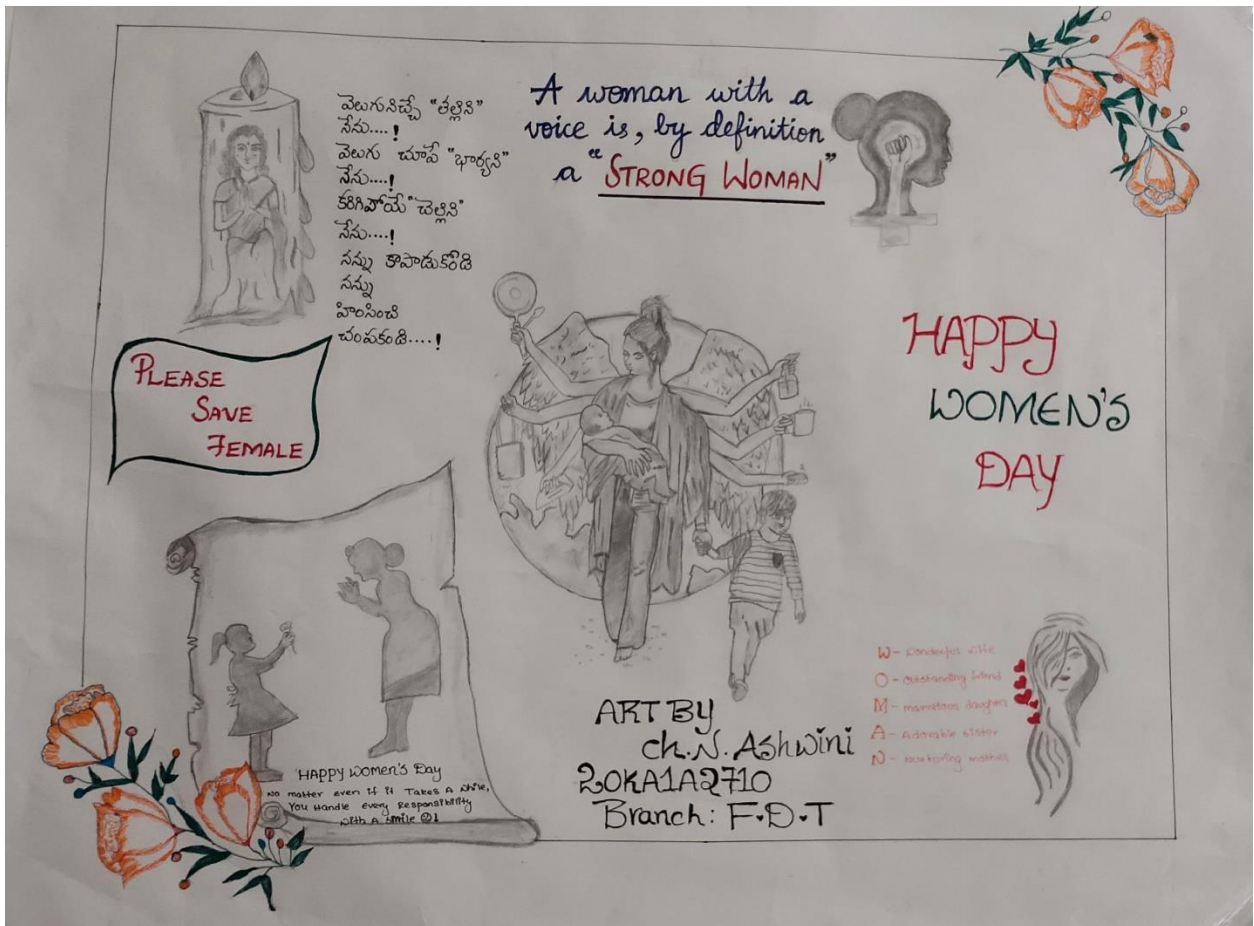 వెలుగునిచ్చే "తల్లిని"
నేను....!
వెలుగు చూపే "భార్యని"
నేను....!
కరిగిపోయే "చెల్లిని"
నేను....!
నన్ను కాపాడుకోండి
నన్ను
హింసించి
చంపకండి....!
A woman with a
voice is, by definition
a "STRONG WOMAN"
PLEASE
SAVE
FEMALE
HAPPY
WOMEN'S
DAY
HAPPY Women's Day
No matter even if it Takes A while,
You Handle Every Responsibility
with A smile
ART BY
Ch. N. Ashwini
20KA1A2710
Branch: F.D.T
W- wonderful wife
O- outstanding friend
M- marvellous daughter
A- Adorable sister
N- nurturing mother